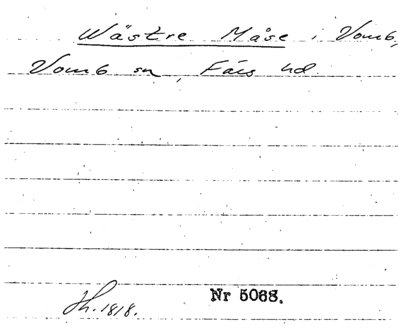 Wästre Måse i Vomb,
Vomb sn, Färs hd
Jh. 1818.
Nr 5068.